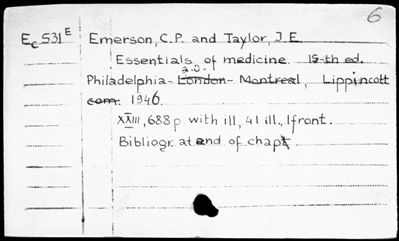 6
Ec 531 E Emerson, C.P. and Taylor, J.E.
Essentials of medicine. 15-th ed.
a.o.
Philadelphia - London - Montreal, Lippincott
com. 1946.
XXIII, 688 p with ill, 41 ill., 1 front.
Bibliogr. at end of chapt.